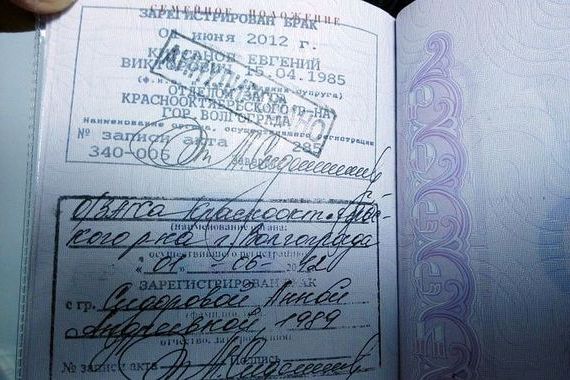 СЕМЕЙНОЕ ПОЛОЖЕНИЕ
ЗАРЕГИСТРИРОВАН БРАК
июня 2012 г.
ЕВГЕНИЙ
15.04.1985
ОТДЕЛОМ
КРАСНООКТЯБРЬСКОГО Р-НА
ГОР. ВОЛГОГРАДА
Наименование органа, осуществившего регистрацию
№ записи акта 285
340-006
О/ЗАГСа
кого р-на г. Волгограда
(наименование органа,
осуществившего регистрацию)
"01" 06
ЗАРЕГИСТРИРОВАН БРАК
с гр. Сидоровой Анной
Андреевной, 1989
№ записи акта Подпись